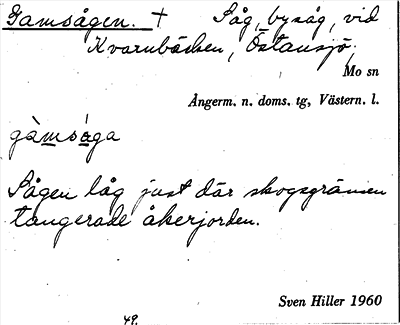 Gamsågen. † Såg, bysåg, vid
Kvarnbäcken, Östansjö,
Mo sn
Ångerm. n. doms. tg, Västern. l.
gàmsóga
Sågen låg just där skogsgränsen
tangerade åkerjorden.
Sven Hiller 1960
49.